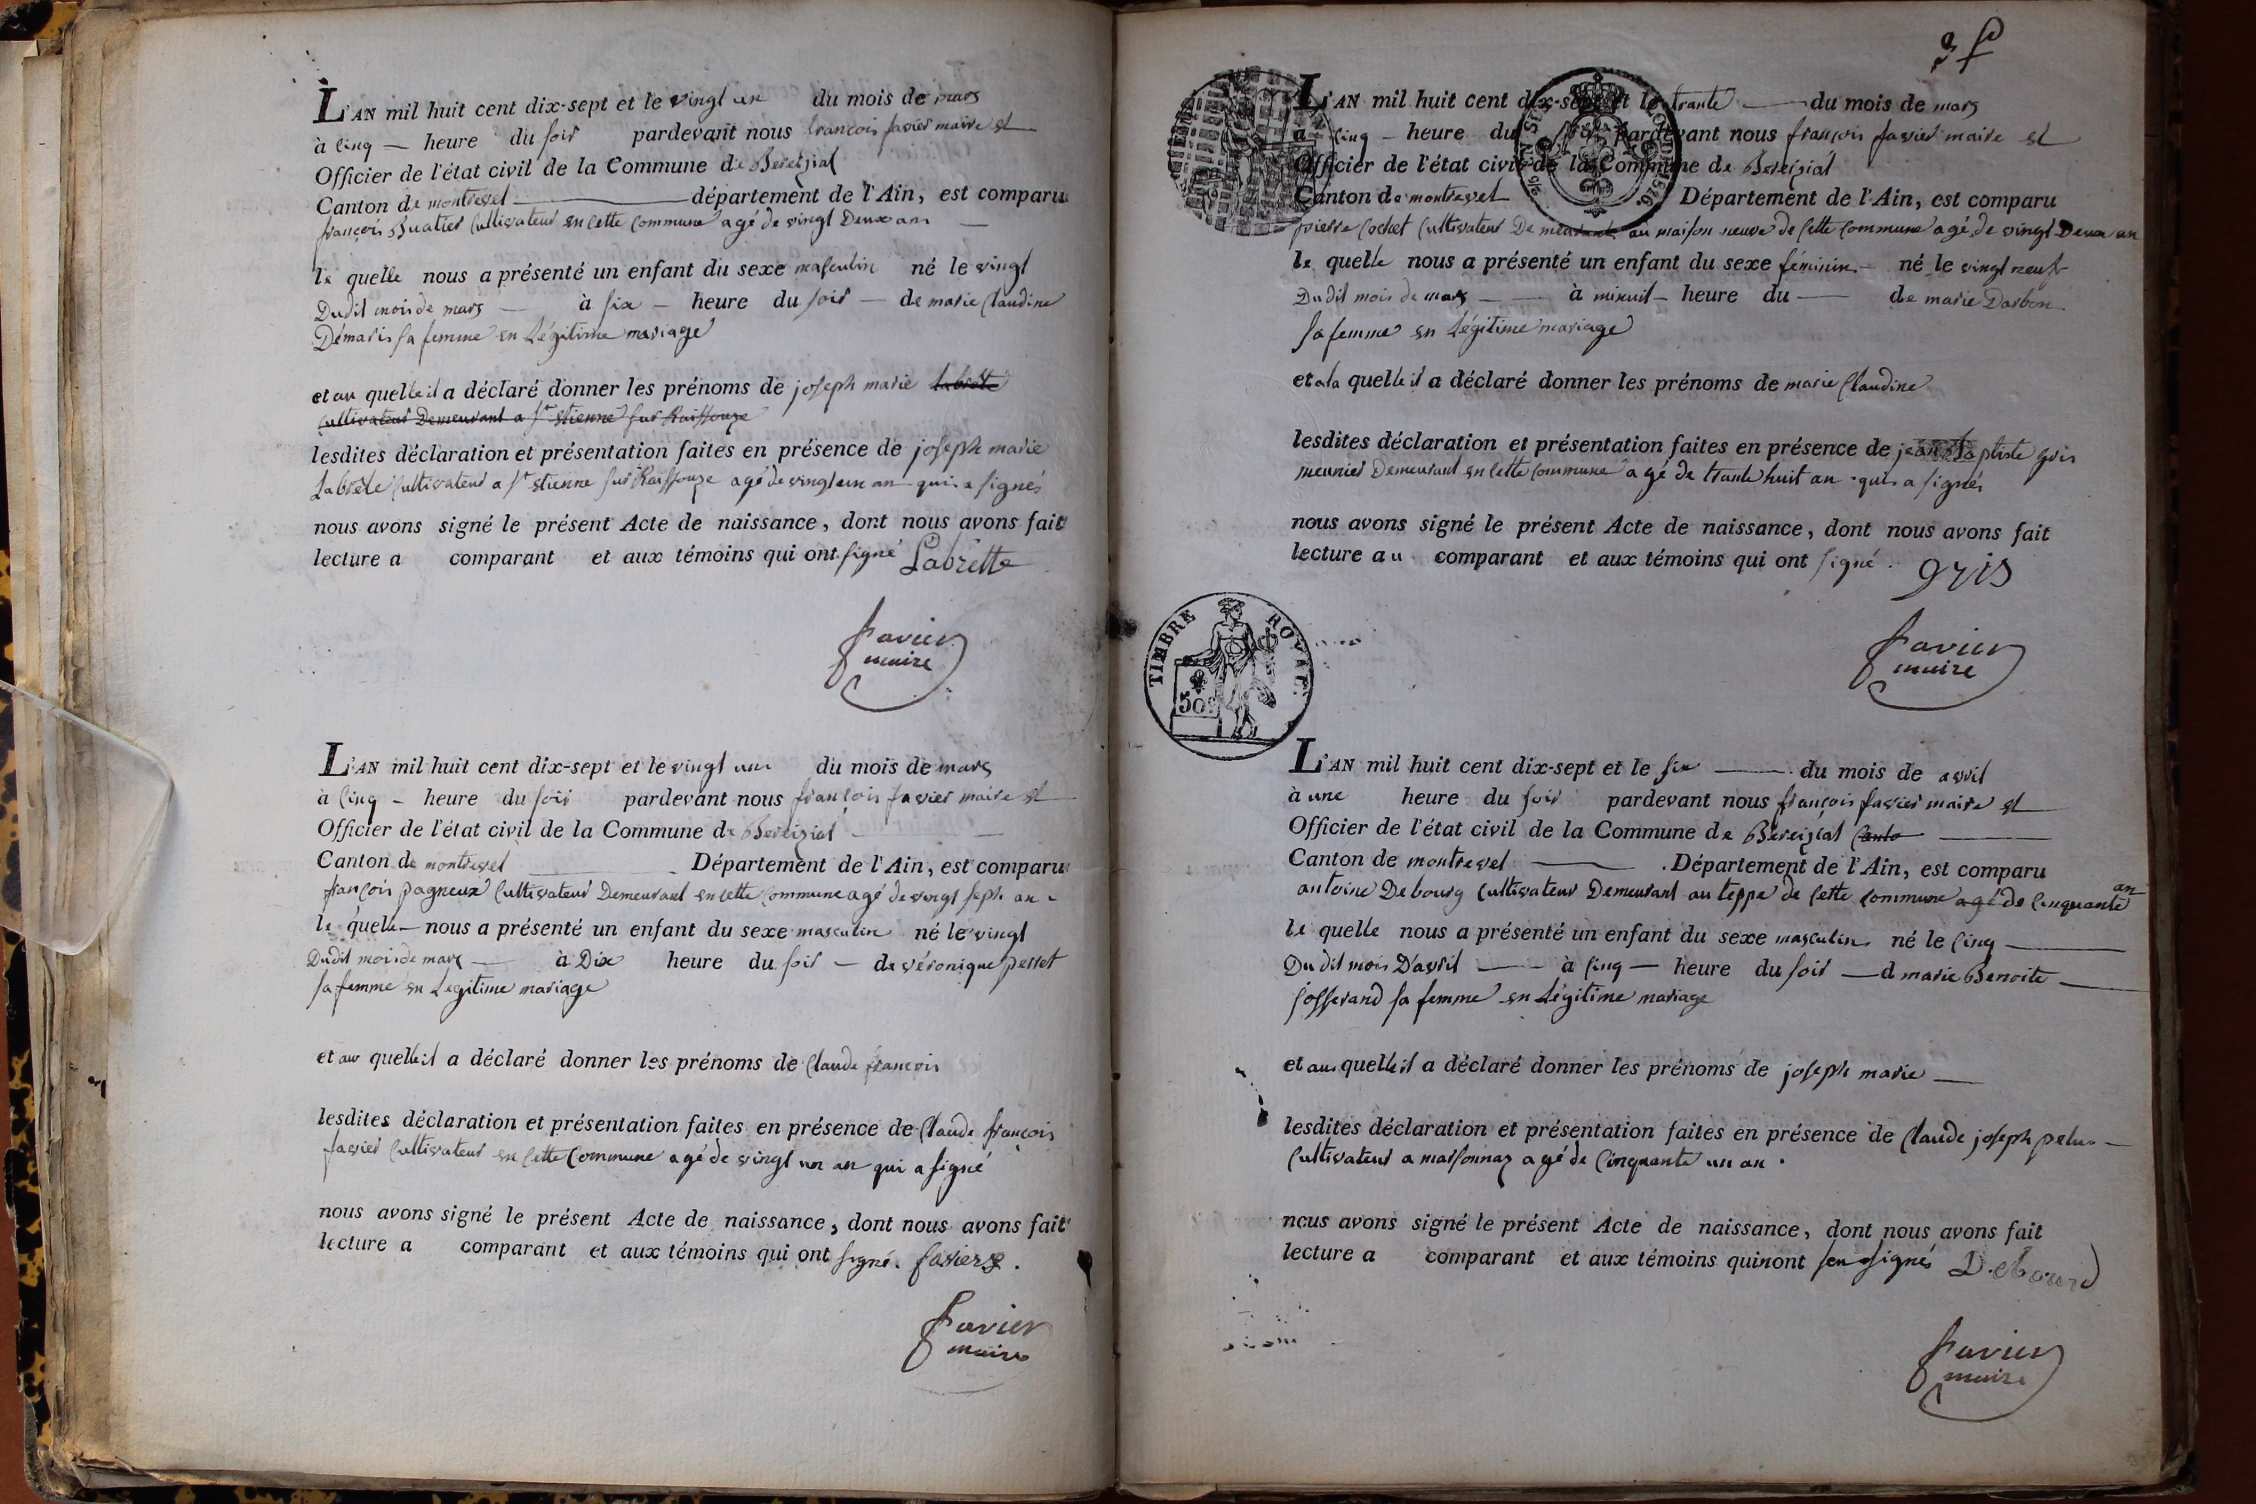 L'AN mil huit cent dix-sept et le vingt un du mois de mars
à cinq — heure du soir pardevant nous francois favier maire et
Officier de l'état civil de la Commune de Bereiziat
Canton de montrevel département de l'Ain, est comparu
françois Buatier Cultivateur en cette commune agé de vingt Deux ans
le quelle nous a présenté un enfant du sexe masculin né le vingt
Dudit mois de mars à six — heure du soir — de marie Claudine
Démaris sa femme en Légitime mariage
et au quelle il a déclaré donner les prénoms de joseph marie Labrette
cultivateur Demeurant a St stienne sur Raissouze
lesdites déclaration et présentation faites en présence de joseph marie
Labrette Cultivateur a St stienne sur Raissouze agé de vingt un an qui a signés
nous avons signé le présent Acte de naissance, dont nous avons fait
lecture a comparant et aux témoins qui ont signé Labrette
favier
maire
L'AN mil huit cent dix-sept et le vingt un du mois de mars
à Cinq — heure du soir pardevant nous françois favier maire et
Officier de l'état civil de la Commune de Bereiziat
Canton de montrevel Département de l'Ain, est comparu
françois pagneux Cultivateur Demeurant en cette commune agé de vingt sept an
le quelle nous a présenté un enfant du sexe masculin né le vingt
Dudit mois de mars à Dix heure du soir — de véronique perret
sa femme en Legitime mariage
et au quelle il a déclaré donner les prénoms de Claude françois
lesdites déclaration et présentation faites en présence de Claude françois
favier Cultivateur en Cette Commune agé de vingt un an qui a signé
nous avons signé le présent Acte de naissance, dont nous avons fait
lecture a comparant et aux témoins qui ont signé. favier
favier
maire
3
L'AN mil huit cent dix-sept et le trante du mois de mars
a cinq — heure du soir pardevant nous françois favier maire et
Officier de l'état civil de la Commune de Bereiziat
Canton de montrevel Département de l'Ain, est comparu
pierre Cochet Cultivateur Demeurant au maison neuve de Cette Commune agé de vingt Deux an
le quelle nous a présenté un enfant du sexe féminin né le vingt neuf
Dudit mois de mars à minuit — heure du — de marie Darbon
sa femme en Légitime mariage
et a la quelle il a déclaré donner les prénoms de marie Claudine
lesdites déclaration et présentation faites en présence de jean baptiste gris
meunier Demeurant en Cette Commune agé de trante huit an qui a signés
nous avons signé le présent Acte de naissance, dont nous avons fait
lecture au comparant et aux témoins qui ont signé. gris
TIMBRE ROYAL
50
favier
maire
L'AN mil huit cent dix-sept et le six du mois de avril
à une heure du soir pardevant nous françois favier maire et
Officier de l'état civil de la Commune de Bereiziat Canto
Canton de montrevel Département de l'Ain, est comparu
antoine Debourg Cultivateur Demeurant au teppe de Cette Commune agé de Cinquante an
le quelle nous a présenté un enfant du sexe masculin né le Cinq
Dudit mois D'avril à Cinq — heure du soir — d marie Benoite
josserand sa femme en Légitime mariage
et au quelle il a déclaré donner les prénoms de joseph marie
lesdites déclaration et présentation faites en présence de Claude joseph pelus
Cultivateur a marsonnaz agé de Cinquante un an.
nous avons signé le présent Acte de naissance, dont nous avons fait
lecture a comparant et aux témoins qui nont signés Debourd
favier
maire